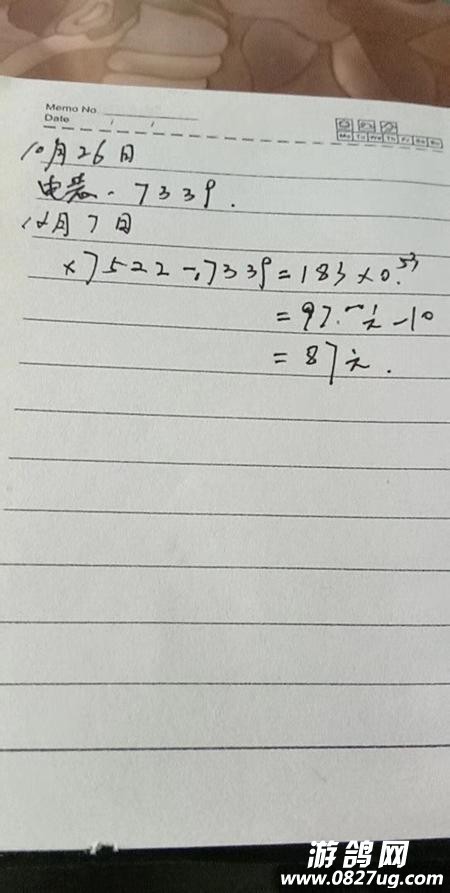 Memo No.
Date / /
Mo Tu We Th Fr Sa Su
10月26日
电表. 7339.
12月7日
7522-7339=183×0.53
=97.元-10
=87元.
游鸽网
www.0827ug.com